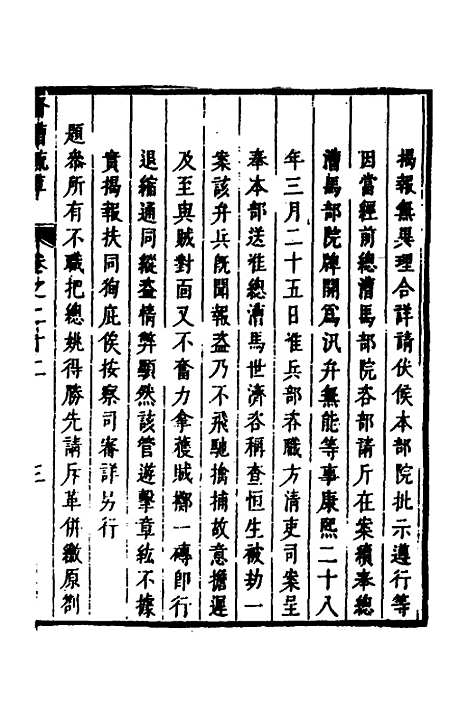 揭報無異理合詳請伏候本部院批示遵行等
因當經前總漕馬部院咨部請斥在案續奉總
漕馬部院牌開爲汛弁無能等事康熙二十八
年三月二十五日准兵部咨職方清吏司案呈
奉本部送准總漕馬世濟咨稱查恒生被劫一
案該弁兵旣聞報盜乃不飛馳擒捕故意擔遲
及至與賊對面又不奮力拿獲賊擲一磚卽行
退縮通同縱盜情弊顯然該管遊擊章紘不據
實揭報扶同狥庇俟按察司審詳另行
題叅所有不職把總姚得勝先請斥革併繳原劄
督漕疏草
卷之二十二
三